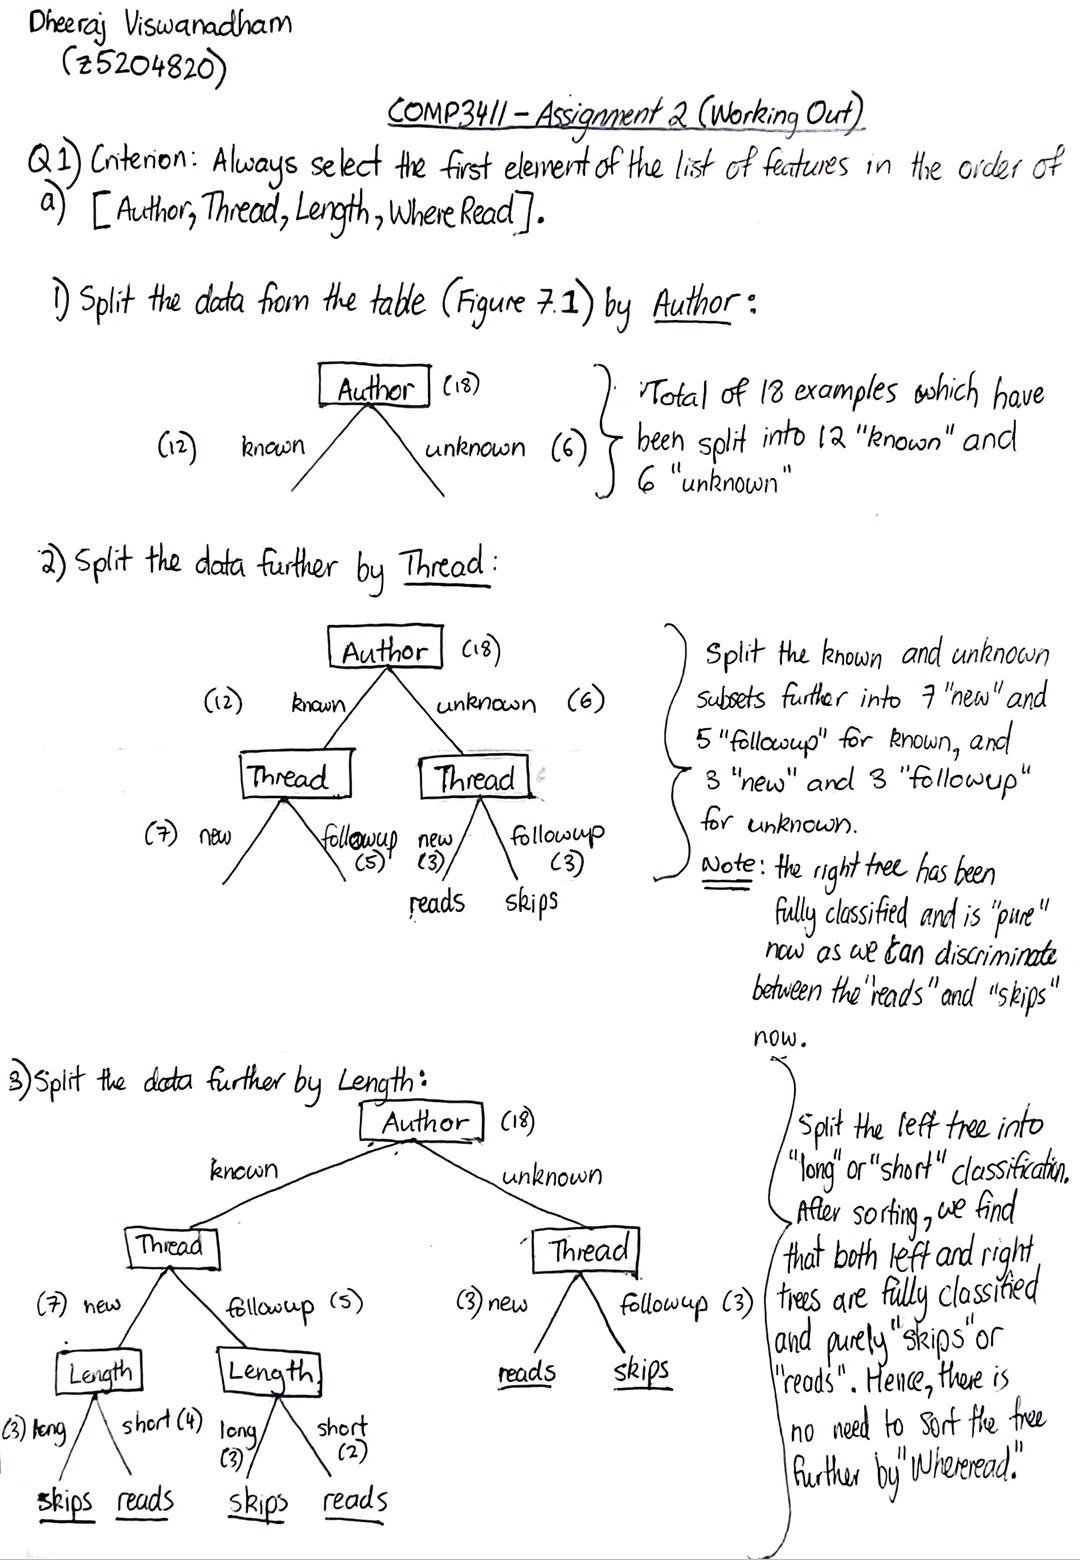 Dheeraj Viswanadham
(z5204820)
COMP3411 – Assignment 2 (Working Out)
Q1) Criterion: Always select the first element of the list of features in the order of
a) [Author, Thread, Length, Where Read].
1) Split the data from the table (Figure 7.1) by Author:
Author (18)
(12) known unknown (6)
Total of 18 examples which have
been split into 12 "known" and
6 "unknown"
2) Split the data further by Thread:
Author (18)
(12) known unknown (6)
Thread Thread
(7) new followup new followup
(5) (3) (3)
reads skips
Split the known and unknown
subsets further into 7 "new" and
5 "followup" for known, and
3 "new" and 3 "followup"
for unknown.
Note: the right tree has been
fully classified and is "pure"
now as we can discriminate
between the "reads" and "skips"
now.
3) Split the data further by Length:
Author (18)
known unknown
Thread Thread
(7) new followup (5) (3) new followup (3)
Length Length reads skips
(3) long short (4) long short
(3) (2)
skips reads skips reads
Split the left tree into
"long" or "short" classification.
After sorting, we find
that both left and right
trees are fully classified
and purely "skips" or
"reads". Hence, there is
no need to sort the tree
further by "Whereread."